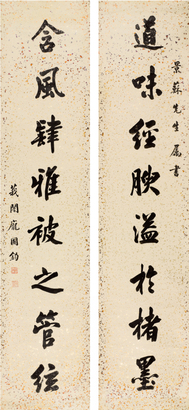 景蘇先生屬書
道味經腴溢於楮墨
含風肆雅被之管絃
龐國鈞